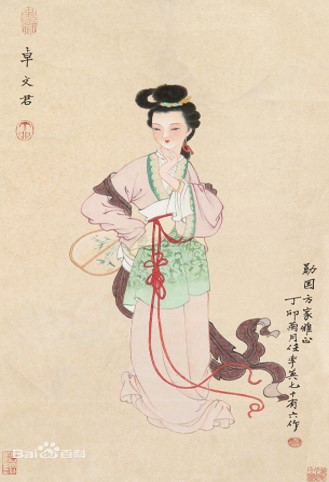 卓文君
勤国方家雅正
丁卯菊月任率英七十有六作
Bai百科